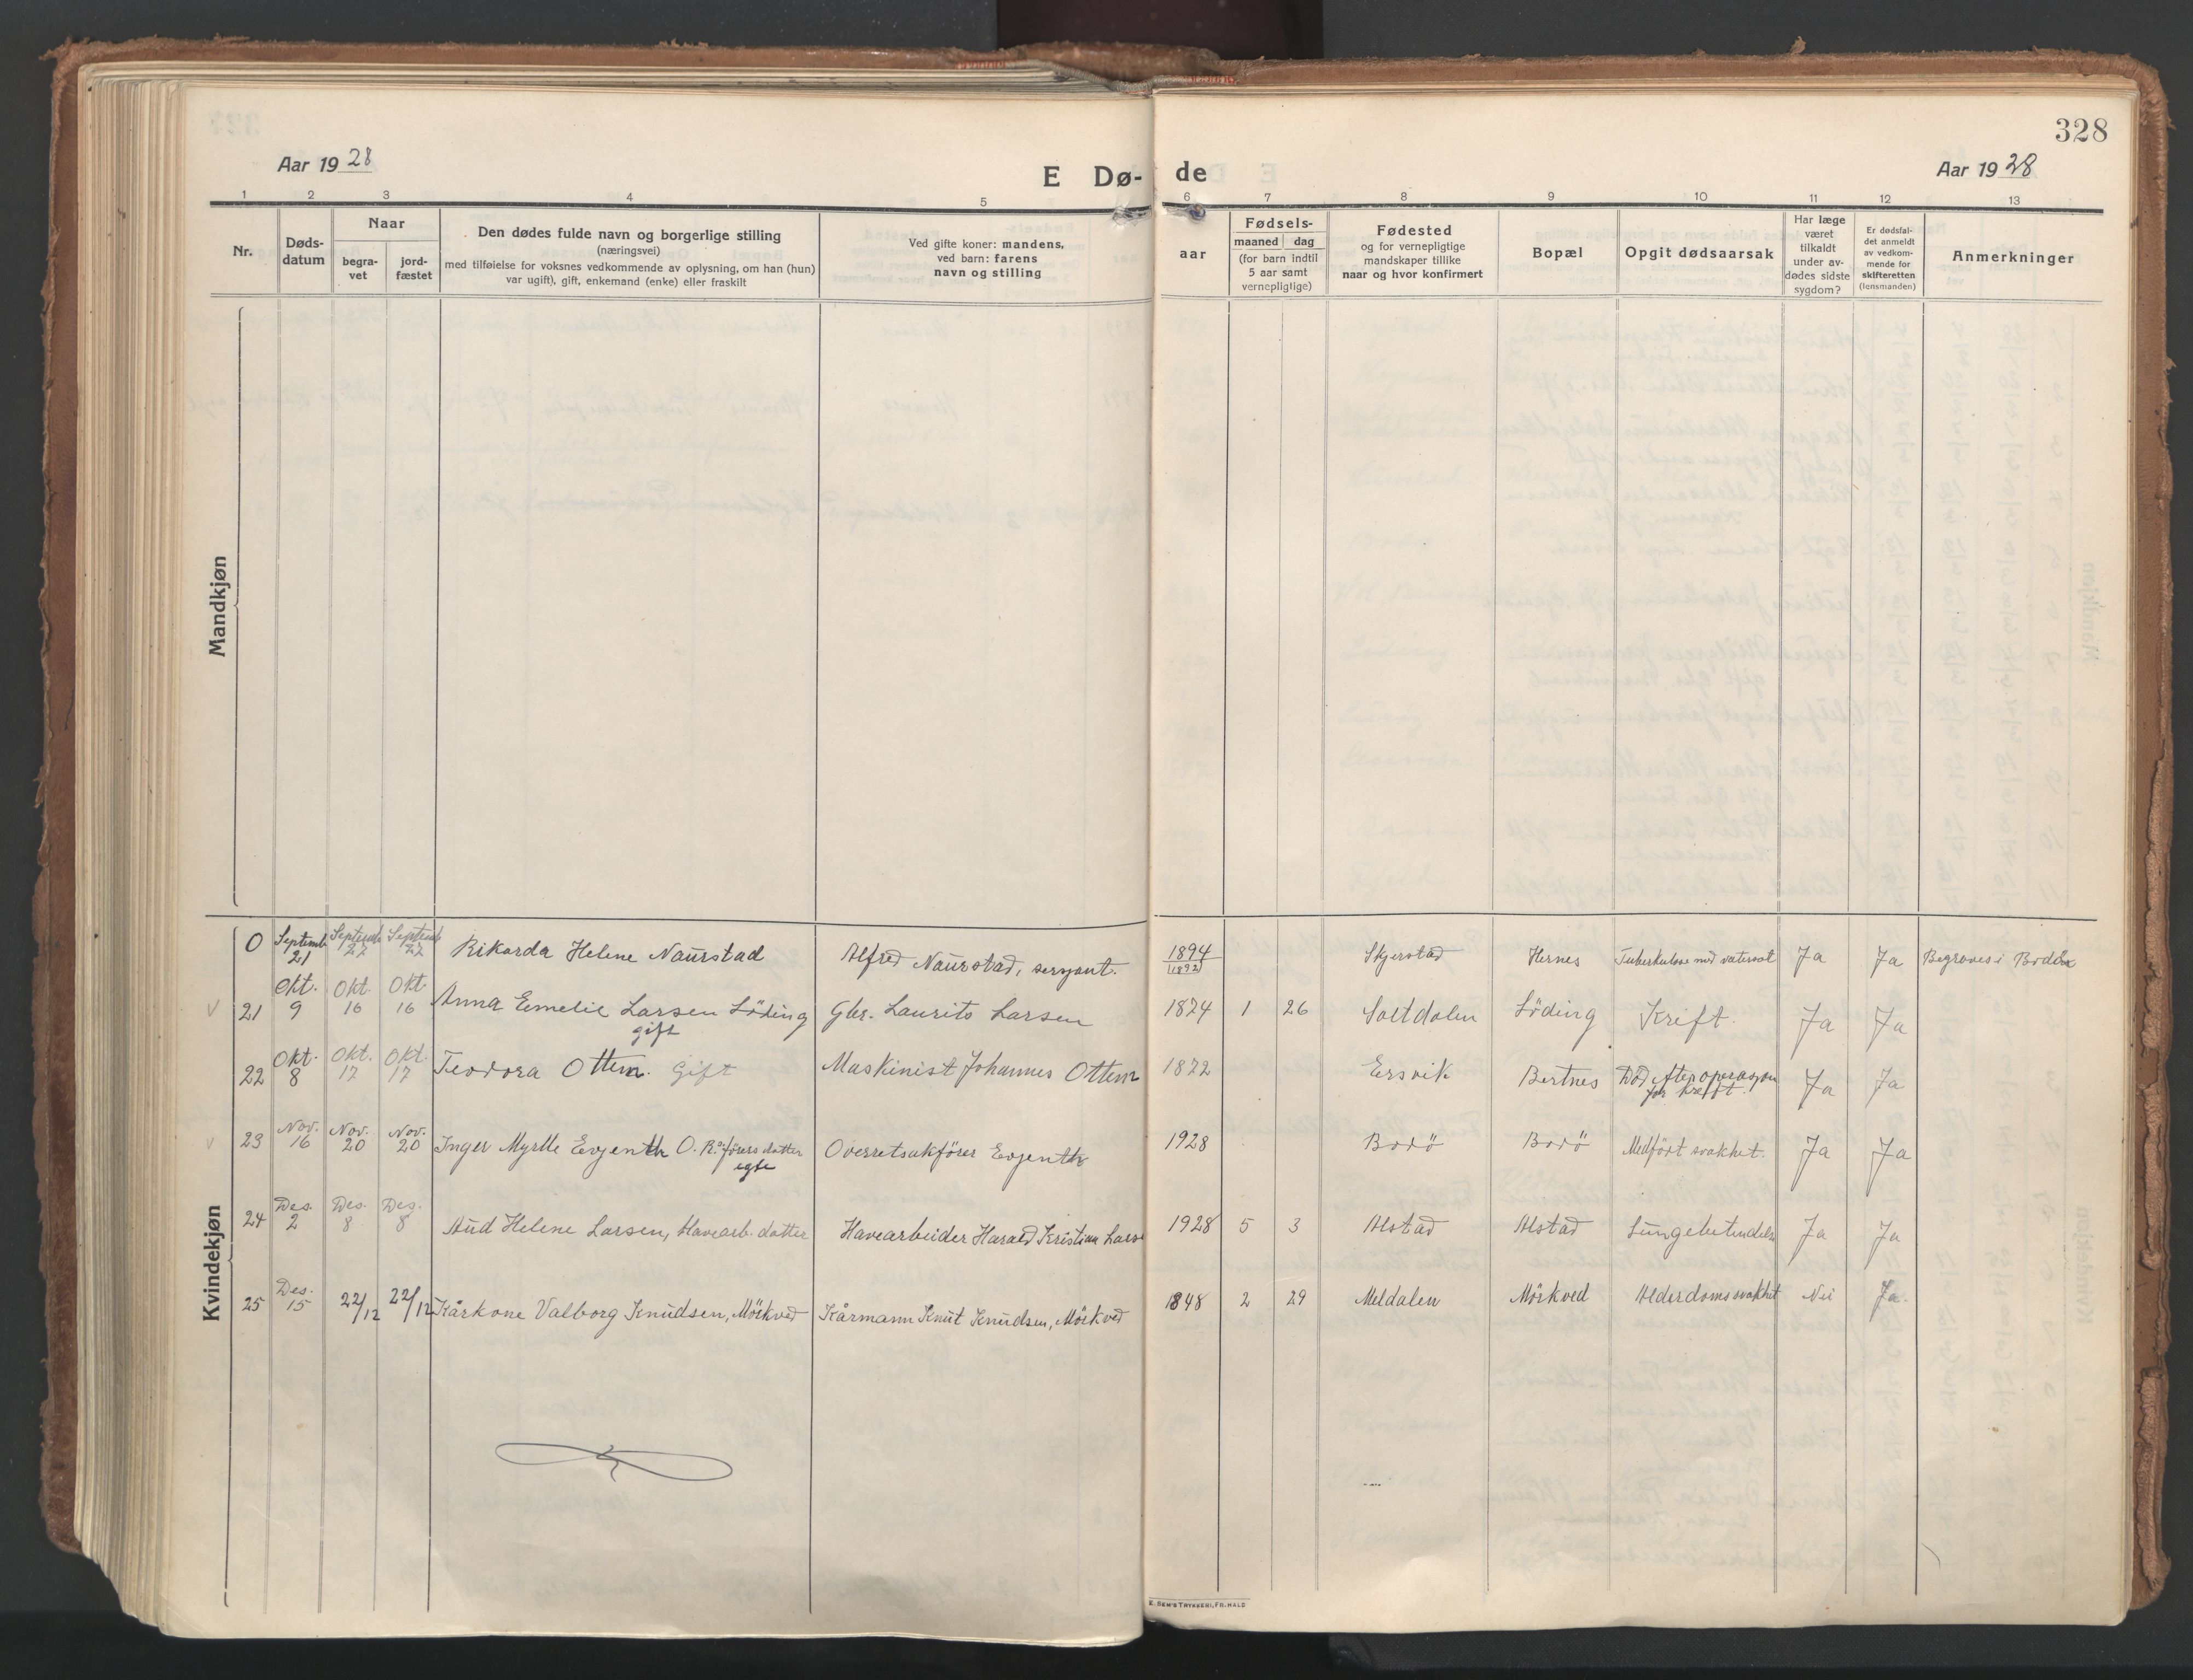 328
Aar 1928
E Dø-
de
Aar 1928
1 2 3 4 5 6 7 8 9 10 11 12 13
Nr.
Døds-
datum
Naar
begra-
vet
jord-
fæstet
Den dødes fulde navn og borgerlige stilling
(næringsvei)
med tilføielse for voksnes vedkommende av oplysning, om han (hun)
var ugift), gift, enkemand (enke) eller fraskilt
Ved gifte koner: mandens,
ved barn: farens
navn og stilling
aar
Fødsels-
maaned dag
(for barn indtil
5 aar samt
vernepligtige)
Fødested
og for vernepligtige
mandskaper tillike
naar og hvor konfirmert
Bopæl
Opgit dødsaarsak
Har læge
været
tilkaldt
under av-
dødes sidste
sygdom?
Er dødsfal-
det anmeldt
av vedkom-
mende for
skifteretten
(lensmanden)
Anmerkninger
Mandkjøn
Kvindekjøn
0 Septemb 21 Septemb 22 Septemb 22 Rikarda Helene Naurstad Alfred Naurstad, sersjant. 1894 Skjerstad Hernes Tuberkulose med vatersot Ja Ja Begraves i Bodø
1892
21 Okt. 9 Okt 16 Okt 16 Anna Emelie Larsen Löding Gbr. Laurits Larsen 1874 1 26 Saltdalen Löding Kreft. Ja Ja
gift
22 Okt. 8 Okt. 17 Okt. 17 Teodora Ottem. Gift Maskinist Johannes Ottem 1872 Ersvik Bertnes Död efter operasjon Ja Ja
for kreft.
23 Nov. 16 Nov. 20 Nov. 20 Inger Myrtle Evjenth O. R. förers datter Overretsakförer Evjenth 1928 Bodö Bodö Medfört svakhet. Ja Ja
egte
24 Des. 2 Des. 8 Des. 8 Aud Helene Larsen, Havearb. datter Havearbeider Harald Kristian Larse 1928 5 3 Alstad Alstad Lungebetendelse Ja Ja
25 Des. 15 22/12 22/12 Kårkone Valborg Knudsen, Mörkved Kårmann Knut Knudsen, Mörkved 1848 2 29 Meldalen Mörkved Alderdomssvakhet Nei Ja.
E. SEM'S TRYKKERI, FR. HALD